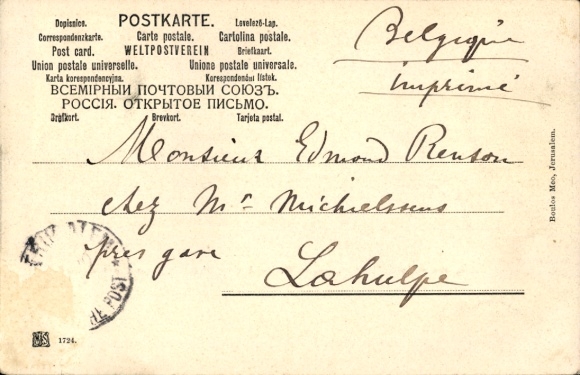 Dopisnice. POSTKARTE. Levelező-Lap.
Correspondenzkarte. Carte postale. Cartolina postale.
Post card. WELTPOSTVEREIN Briefkaart.
Union postale universelle. Unione postale universale.
Karta korespondencyjna. Korespondenční lístek.
ВСЕМІРНЫЙ ПОЧТОВЫЙ СОЮЗЪ.
РОССІЯ. ОТКРЫТОЕ ПИСЬМО.
Brefkort. Brevkort. Tarjeta postal.
Belgique
imprimé
Monsieur Edmond Renson
chez Mr Michielssens
près gare
Lahulpe
Boulos Meo, Jerusalem.
HE POST
1724.